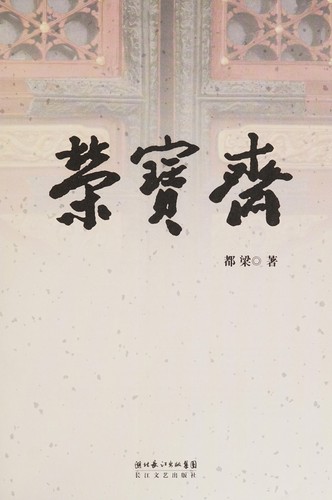 榮寶齋
都梁◎著
湖北长江出版集团
长江文艺出版社